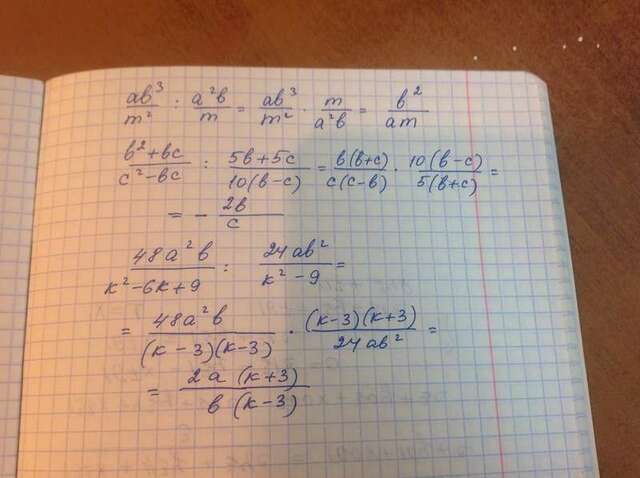 ab³/m² : a²b/m = ab³/m² · m/a²b = b²/am
b²+bc/c²-bc : 5b+5c/10(b-c) = b(b+c)/c(c-b) · 10(b-c)/5(b+c) =
= - 2b/c
48a²b/k²-6k+9 : 24ab²/k²-9 =
= 48a²b/(k-3)(k-3) · (k-3)(k+3)/24ab² =
= 2a(k+3)/b(k-3)